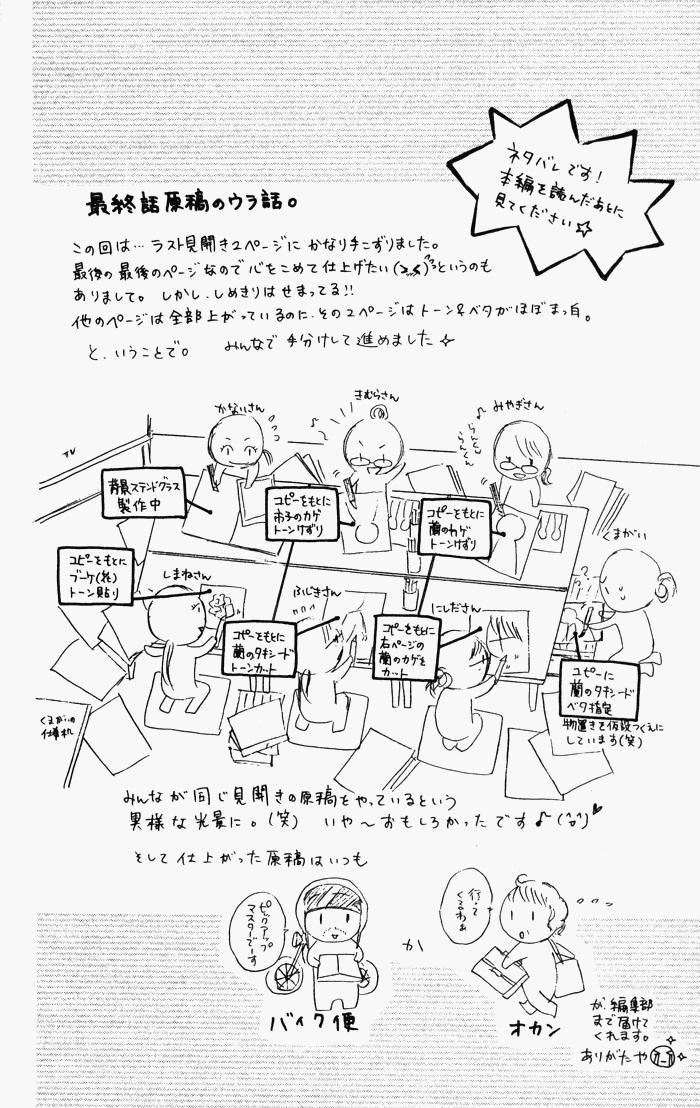 ネタバレです!
本編を読んだあとに
見てください☆
最終話原稿のウラ話。
この回は…ラスト見開き2ページに かなり手こずりました。
最後の最後のページなので心をこめて仕上げたい というのも
ありまして。しかし、しめきりはせまってる!!
他のページは全部上がっているのに、その2ページはトーン&ベタがほぼまっ白。
と、いうことで。 みんなで手分けして進めました☆
かないさん
きむらさん
みやぎさん
らんらん
らんらん
TV
背景ステンドグラス
製作中
コピーをもとに
市子のカゲ
トーンけずり
コピーをもとに
蘭のカゲ
トーンけずり
くまがい
コピーをもとに
ブーケ(花)
トーン貼り
しまねさん
ふじきさん
カリカリ
にしださん
コピーをもとに
蘭のタキシード
トーンカット
コピーをもとに
右ページの
蘭のカゲを
カット
コピーに
蘭のタキシード
ベタ指定
物置きを仮設つくえに
しています(笑)
くまがいの
仕事机
みんなが同じ見開きの原稿をやっているという
異様な光景に。(笑) いや〜おもしろかったです♪
そして仕上がった原稿はいつも
ピックアップ
マスターです
バイク便
か
行って
くるわぁ
オカン
が編集部
まで届けて
くれます。
ありがたや